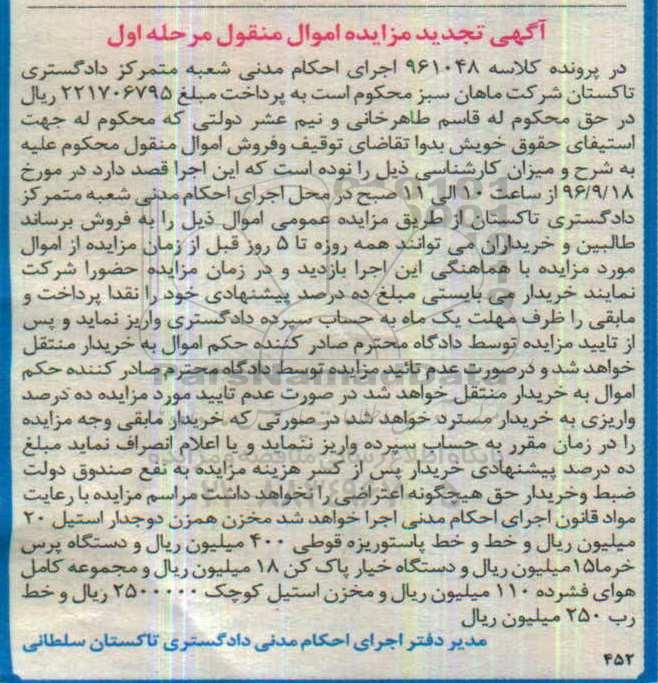 آگهی تجدید مزایده اموال منقول مرحله اول
در پرونده کلاسه ۹۶۱۰۴۸ اجرای احکام مدنی شعبه متمرکز دادگستری
تاکستان شرکت ماهان سبز محکوم است به پرداخت مبلغ ۲۲۱۷۰۶۷۹۵ ریال
در حق محکوم له قاسم طاهرخانی و نیم عشر دولتی که محکوم له جهت
استیفای حقوق خویش بدوا تقاضای توقیف وفروش اموال منقول محکوم علیه
به شرح و میزان کارشناسی ذیل را نوده است که این اجرا قصد دارد در مورخ
۹۶/۹/۱۸ از ساعت ۱۰ الی ۱۱ صبح در محل اجرای احکام مدنی شعبه متمرکز
دادگستری تاکستان از طریق مزایده عمومی اموال ذیل را به فروش برساند
طالبین و خریداران می توانند همه روزه تا ۵ روز قبل از زمان مزایده از اموال
مورد مزایده با هماهنگی این اجرا بازدید و در زمان مزایده حضورا شرکت
نمایند خریدار می بایستی مبلغ ده درصد پیشنهادی خود را نقدا پرداخت و
مابقی را ظرف مهلت یک ماه به حساب سپرده دادگستری واریز نماید و پس
از تایید مزایده توسط دادگاه محترم صادر کننده حکم اموال به خریدار منتقل
خواهد شد و درصورت عدم تائید مزایده توسط دادگاه محترم صادر کننده حکم
اموال به خریدار منتقل خواهد شد در صورت عدم تایید مورد مزایده ده درصد
واریزی به خریدار مسترد خواهد شد در صورتی که خریدار مابقی وجه مزایده
را در زمان مقرر به حساب سپرده واریز ننماید و یا اعلام انصراف نماید مبلغ
ده درصد پیشنهادی خریدار پس از کسر هزینه مزایده به نفع صندوق دولت
ضبط وخریدار حق هیچگونه اعتراضی را نخواهد داشت مراسم مزایده با رعایت
مواد قانون اجرای احکام مدنی اجرا خواهد شد مخزن همزن دوجدار استیل ۲۰
میلیون ریال و خط و خط پاستوریزه قوطی ۴۰۰ میلیون ریال و دستگاه پرس
خرما۱۵میلیون ریال و دستگاه خیار پاک کن ۱۸ میلیون ریال و مجموعه کامل
هوای فشرده ۱۱۰ میلیون ریال و مخزن استیل کوچک ۲۵۰۰۰۰۰ ریال و خط
رب ۲۵۰ میلیون ریال
مدیر دفتر اجرای احکام مدنی دادگستری تاکستان سلطانی
۴۵۲
ParsNamadData